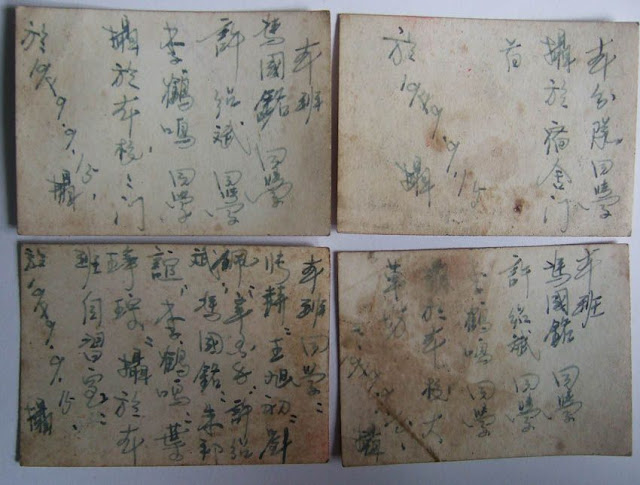 本班
馮國鍇 同學
許紹斌 同學
李鶴鳴 同學
攝於本校之門
於1949.9.15.攝
本分院同學
攝於宿舍門
前
於1949.9.15 攝
本班同學:
王旭初
許紹
斌 馮國鍇 朱邦
誼 李鶴鳴 葉
攝於本
班自習室
於1949.9.15. 攝
本班
馮國鍇 同學
許紹斌 同學
李鶴鳴 同學
攝於本校大
草場
攝